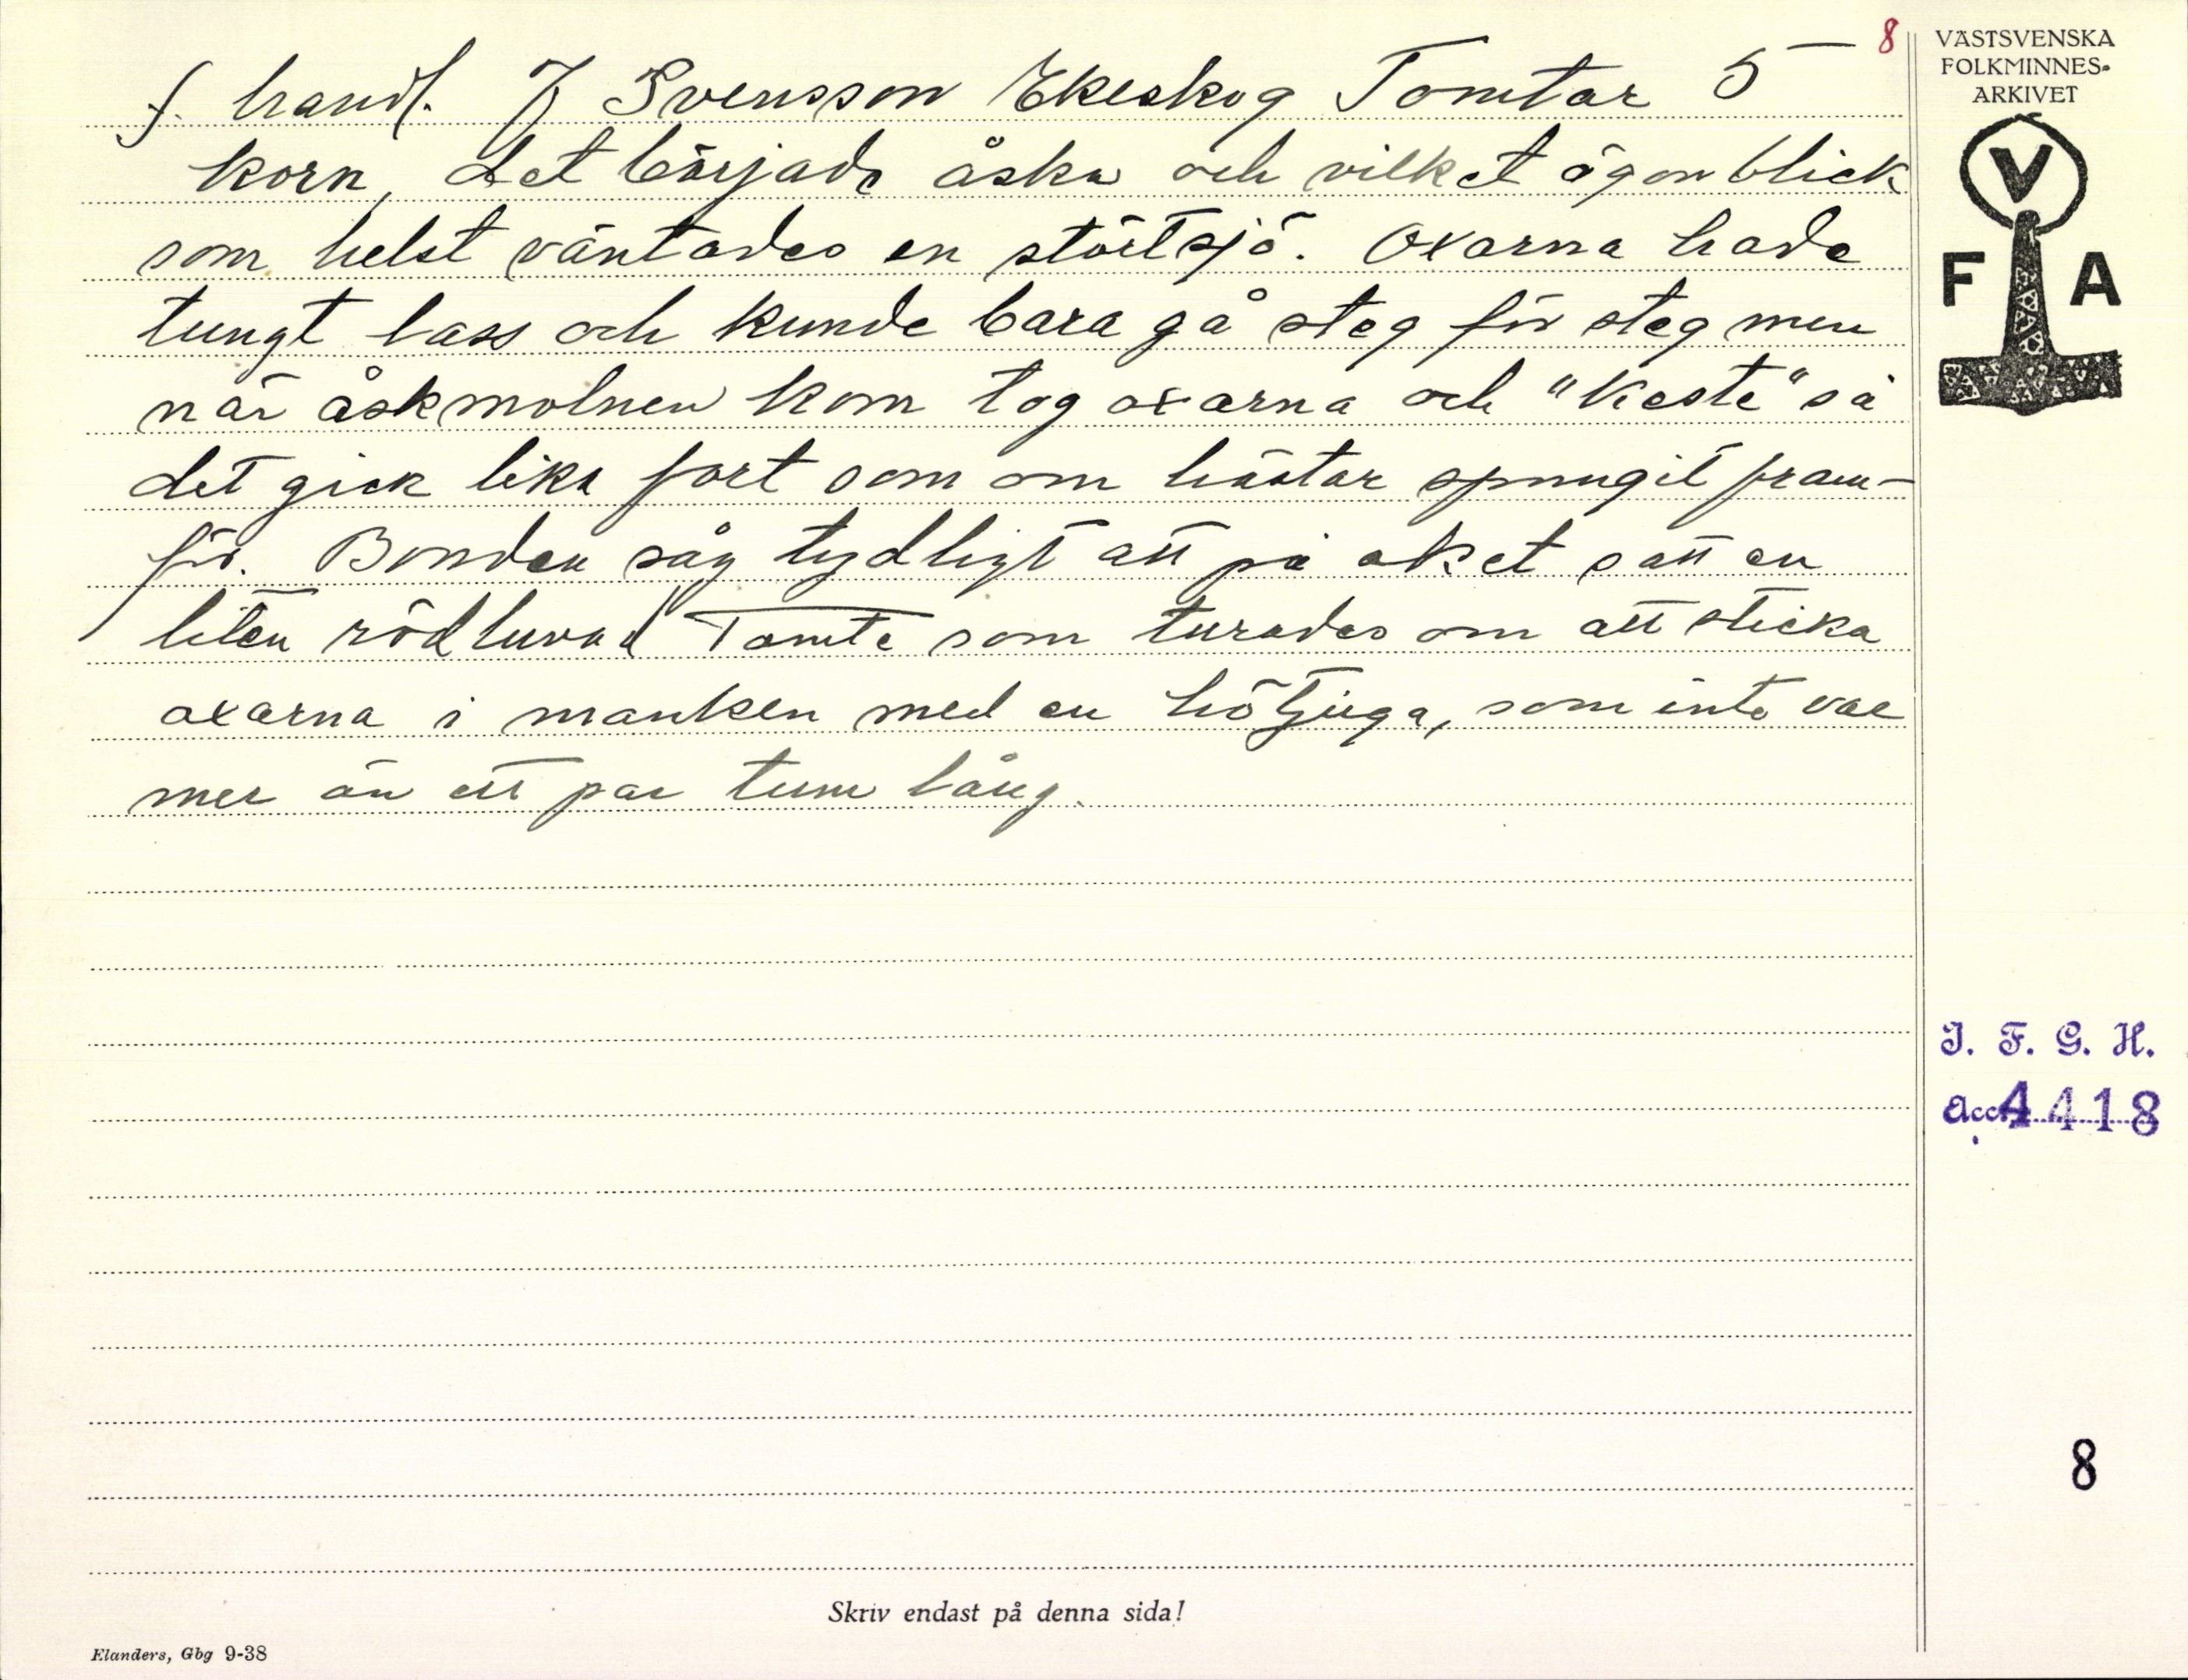 8
f. handl. J Svensson Ekeskog Tomtar 5
korn, det började åska och vilket ögonblick
som helst väntades en störtsjö. Oxarna hade
tungt lass och kunde bara gå steg för steg men
när åskmolnen kom tog oxarna och "keste" så
det gick lika fort som om hästar sprungit fram-
för. Bonden såg tydligt att på oket satt en
liten rödluvad Tomte som turades om att sticka
oxarna i manken med en hötjuga, som inte var
mer än ett par tum lång.
VÄSTSVENSKA
FOLKMINNES-
ARKIVET
V
F A
I. F. G. H.
Acc. 4418
8
Skriv endast på denna sida!
Elanders, Gbg 9-38